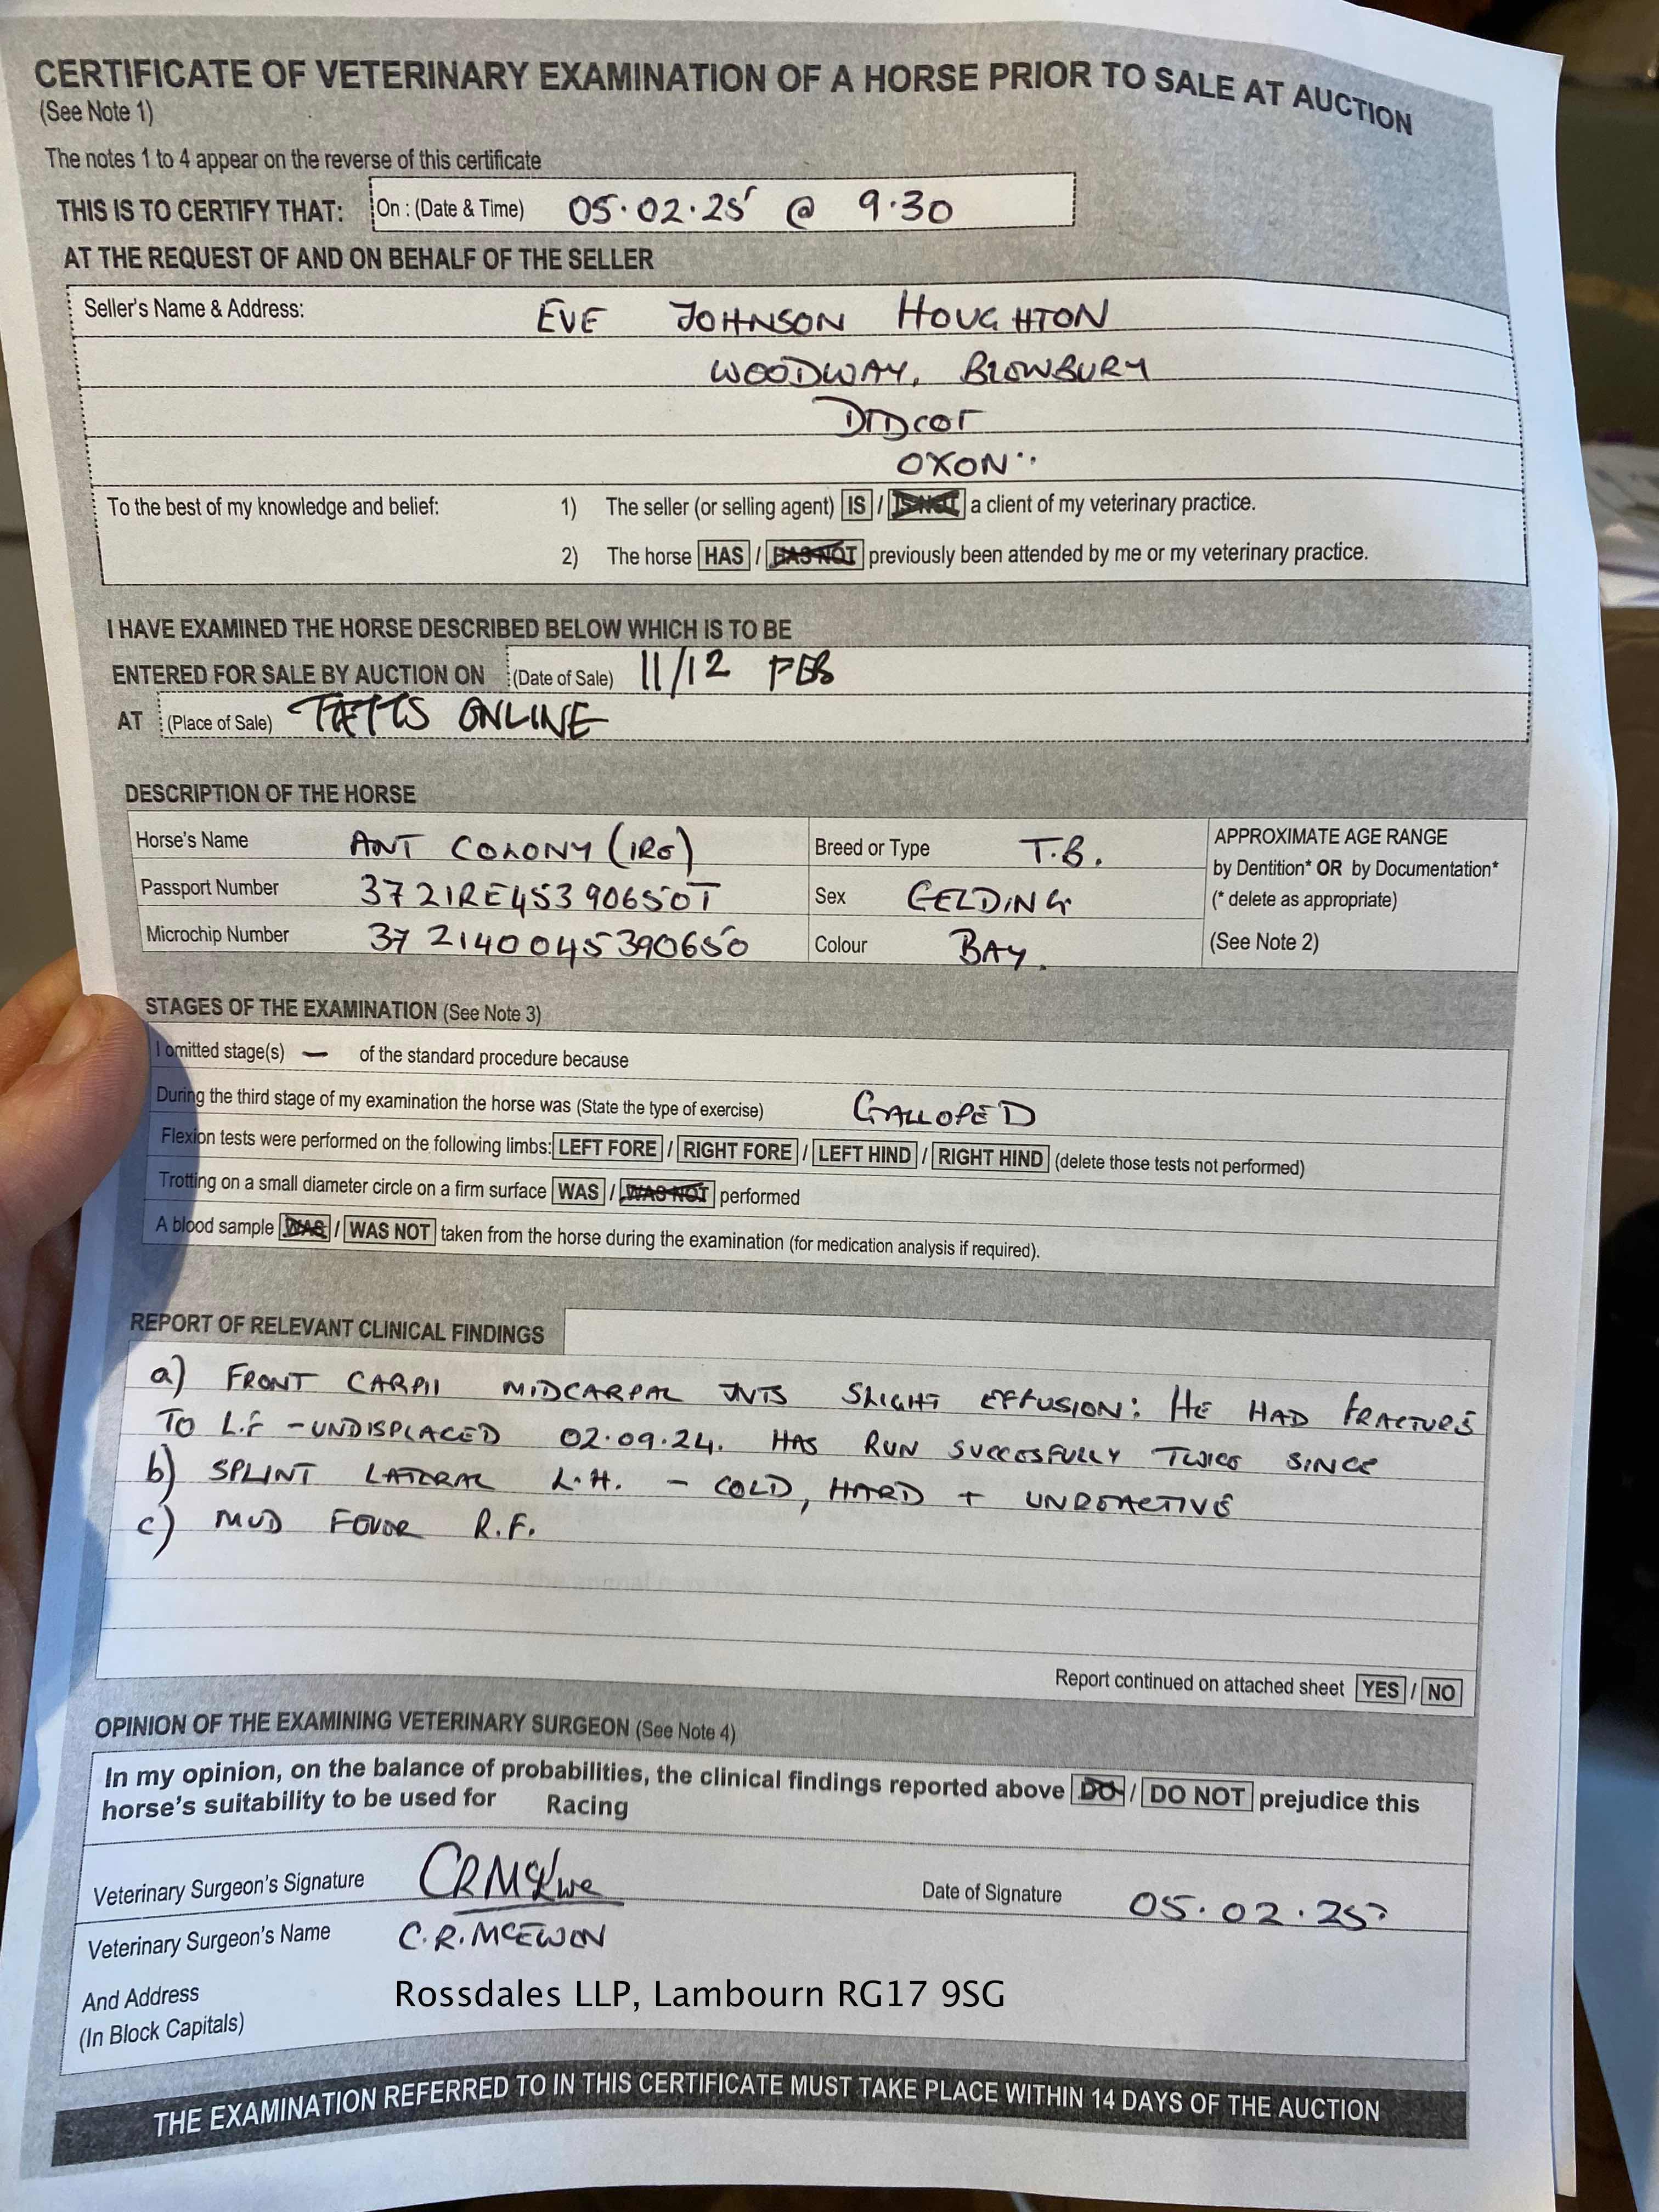 CERTIFICATE OF VETERINARY EXAMINATION OF A HORSE PRIOR TO SALE AT AUCTION
(See Note 1)
The notes 1 to 4 appear on the reverse of this certificate
THIS IS TO CERTIFY THAT: On : (Date & Time) 05.02.25 @ 9.30
AT THE REQUEST OF AND ON BEHALF OF THE SELLER
Seller's Name & Address: EVE JOHNSON HOUGHTON
WOODWAY, BLOWBURY
DIDCOT
OXON..
To the best of my knowledge and belief: 1) The seller (or selling agent) IS / IS NOT a client of my veterinary practice.
2) The horse HAS / HAS NOT previously been attended by me or my veterinary practice.
I HAVE EXAMINED THE HORSE DESCRIBED BELOW WHICH IS TO BE
ENTERED FOR SALE BY AUCTION ON (Date of Sale) 11/12 FEB
AT (Place of Sale) TATTS ONLINE
DESCRIPTION OF THE HORSE
Horse's Name ANT COLONY (IRE) Breed or Type T.B. APPROXIMATE AGE RANGE
by Dentition* OR by Documentation*
Passport Number 372IRE45390650T Sex GELDING (* delete as appropriate)
Microchip Number 372140045390650 Colour BAY. (See Note 2)
STAGES OF THE EXAMINATION (See Note 3)
I omitted stage(s) — of the standard procedure because
During the third stage of my examination the horse was (State the type of exercise) GALLOPED
Flexion tests were performed on the following limbs: LEFT FORE / RIGHT FORE / LEFT HIND / RIGHT HIND (delete those tests not performed)
Trotting on a small diameter circle on a firm surface WAS / WAS NOT performed
A blood sample WAS / WAS NOT taken from the horse during the examination (for medication analysis if required).
REPORT OF RELEVANT CLINICAL FINDINGS
a) FRONT CARPII MIDCARPAL JNTS SLIGHT EFFUSION: HE HAD FRACTURE
TO L.F - UNDISPLACED 02.09.24. HAS RUN SUCCESFULLY TWICE SINCE
b) SPLINT LATERAL L.H. - COLD, HARD + UNREACTIVE
c) MUD FEVER R.F.
Report continued on attached sheet YES / NO
OPINION OF THE EXAMINING VETERINARY SURGEON (See Note 4)
In my opinion, on the balance of probabilities, the clinical findings reported above DO / DO NOT prejudice this
horse's suitability to be used for Racing
Veterinary Surgeon's Signature Date of Signature 05.02.25
Veterinary Surgeon's Name C.R. MCEWEN
And Address Rossdales LLP, Lambourn RG17 9SG
(In Block Capitals)
THE EXAMINATION REFERRED TO IN THIS CERTIFICATE MUST TAKE PLACE WITHIN 14 DAYS OF THE AUCTION